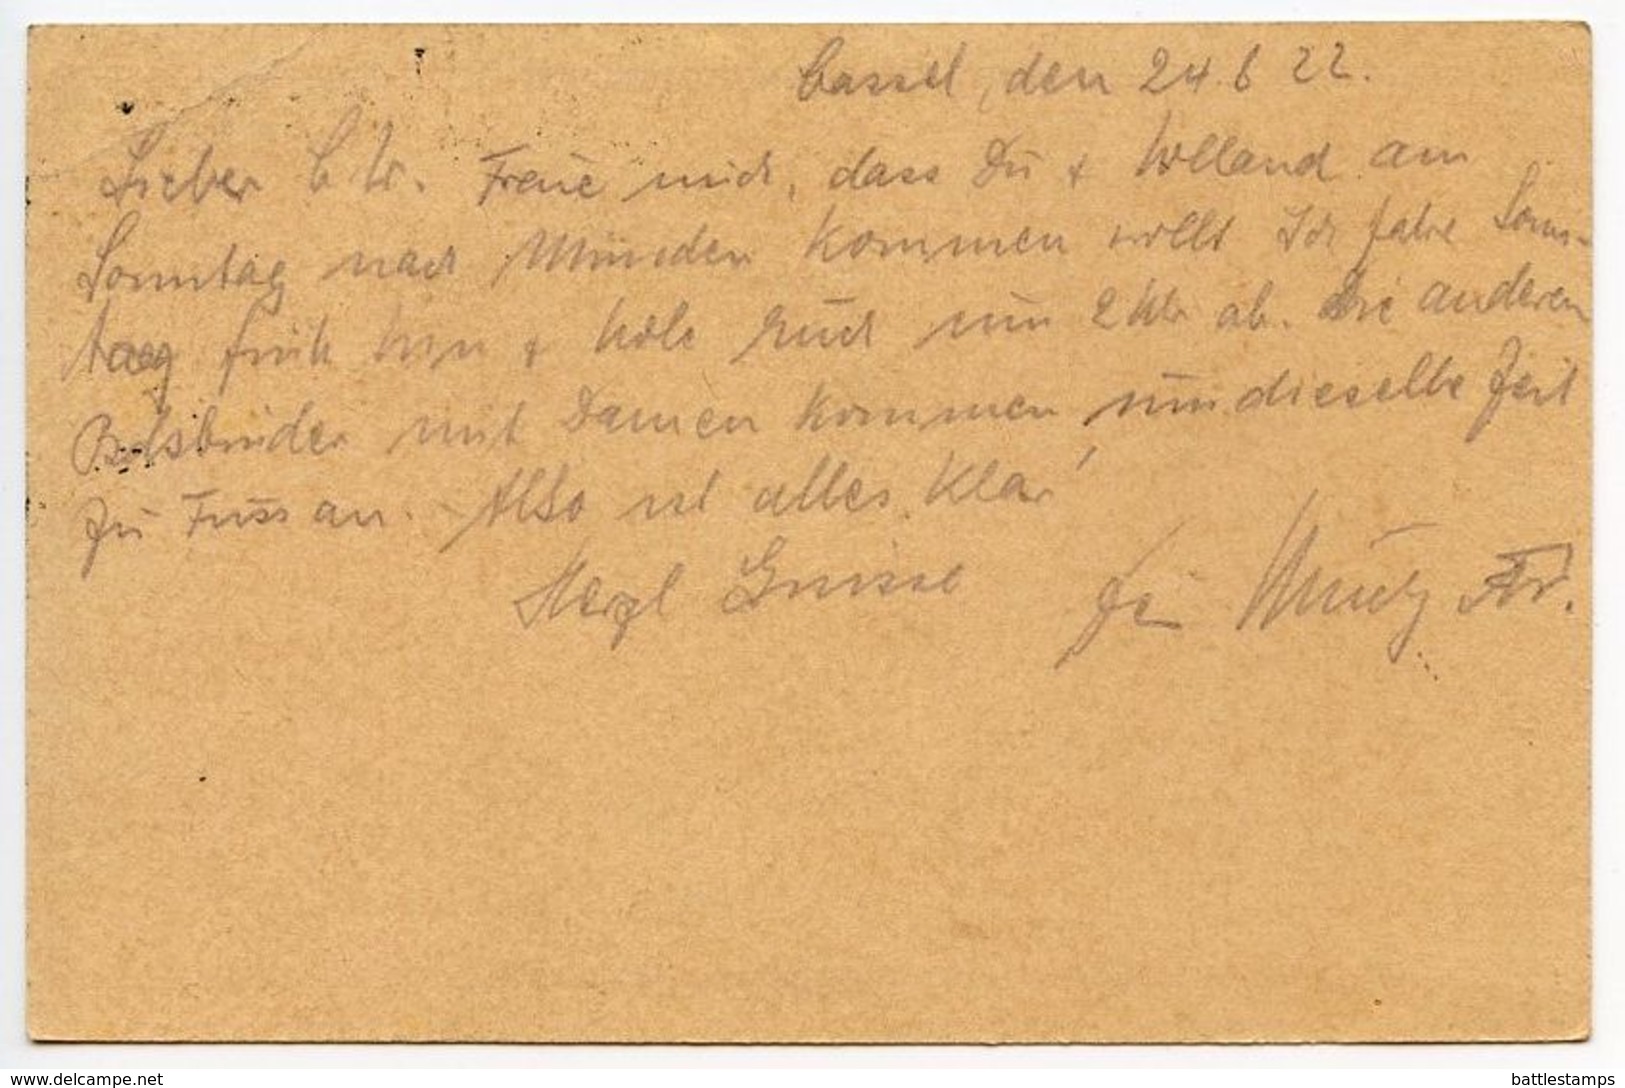 Cassel, den 24.6 22.
Lieber C. W. Freue mich, dass Du + Wolland am
Sonntag nach Münden kommen wollt Ich fahre Sonn-
tag früh hin + hole Euch um 2 Uhr ab. Die anderen
Bdsbrüder mit Damen kommen um dieselbe Zeit
zu Fuss an. Also ist alles klar!
Herzl Grüsse
www.delcampe.net
battlestamps